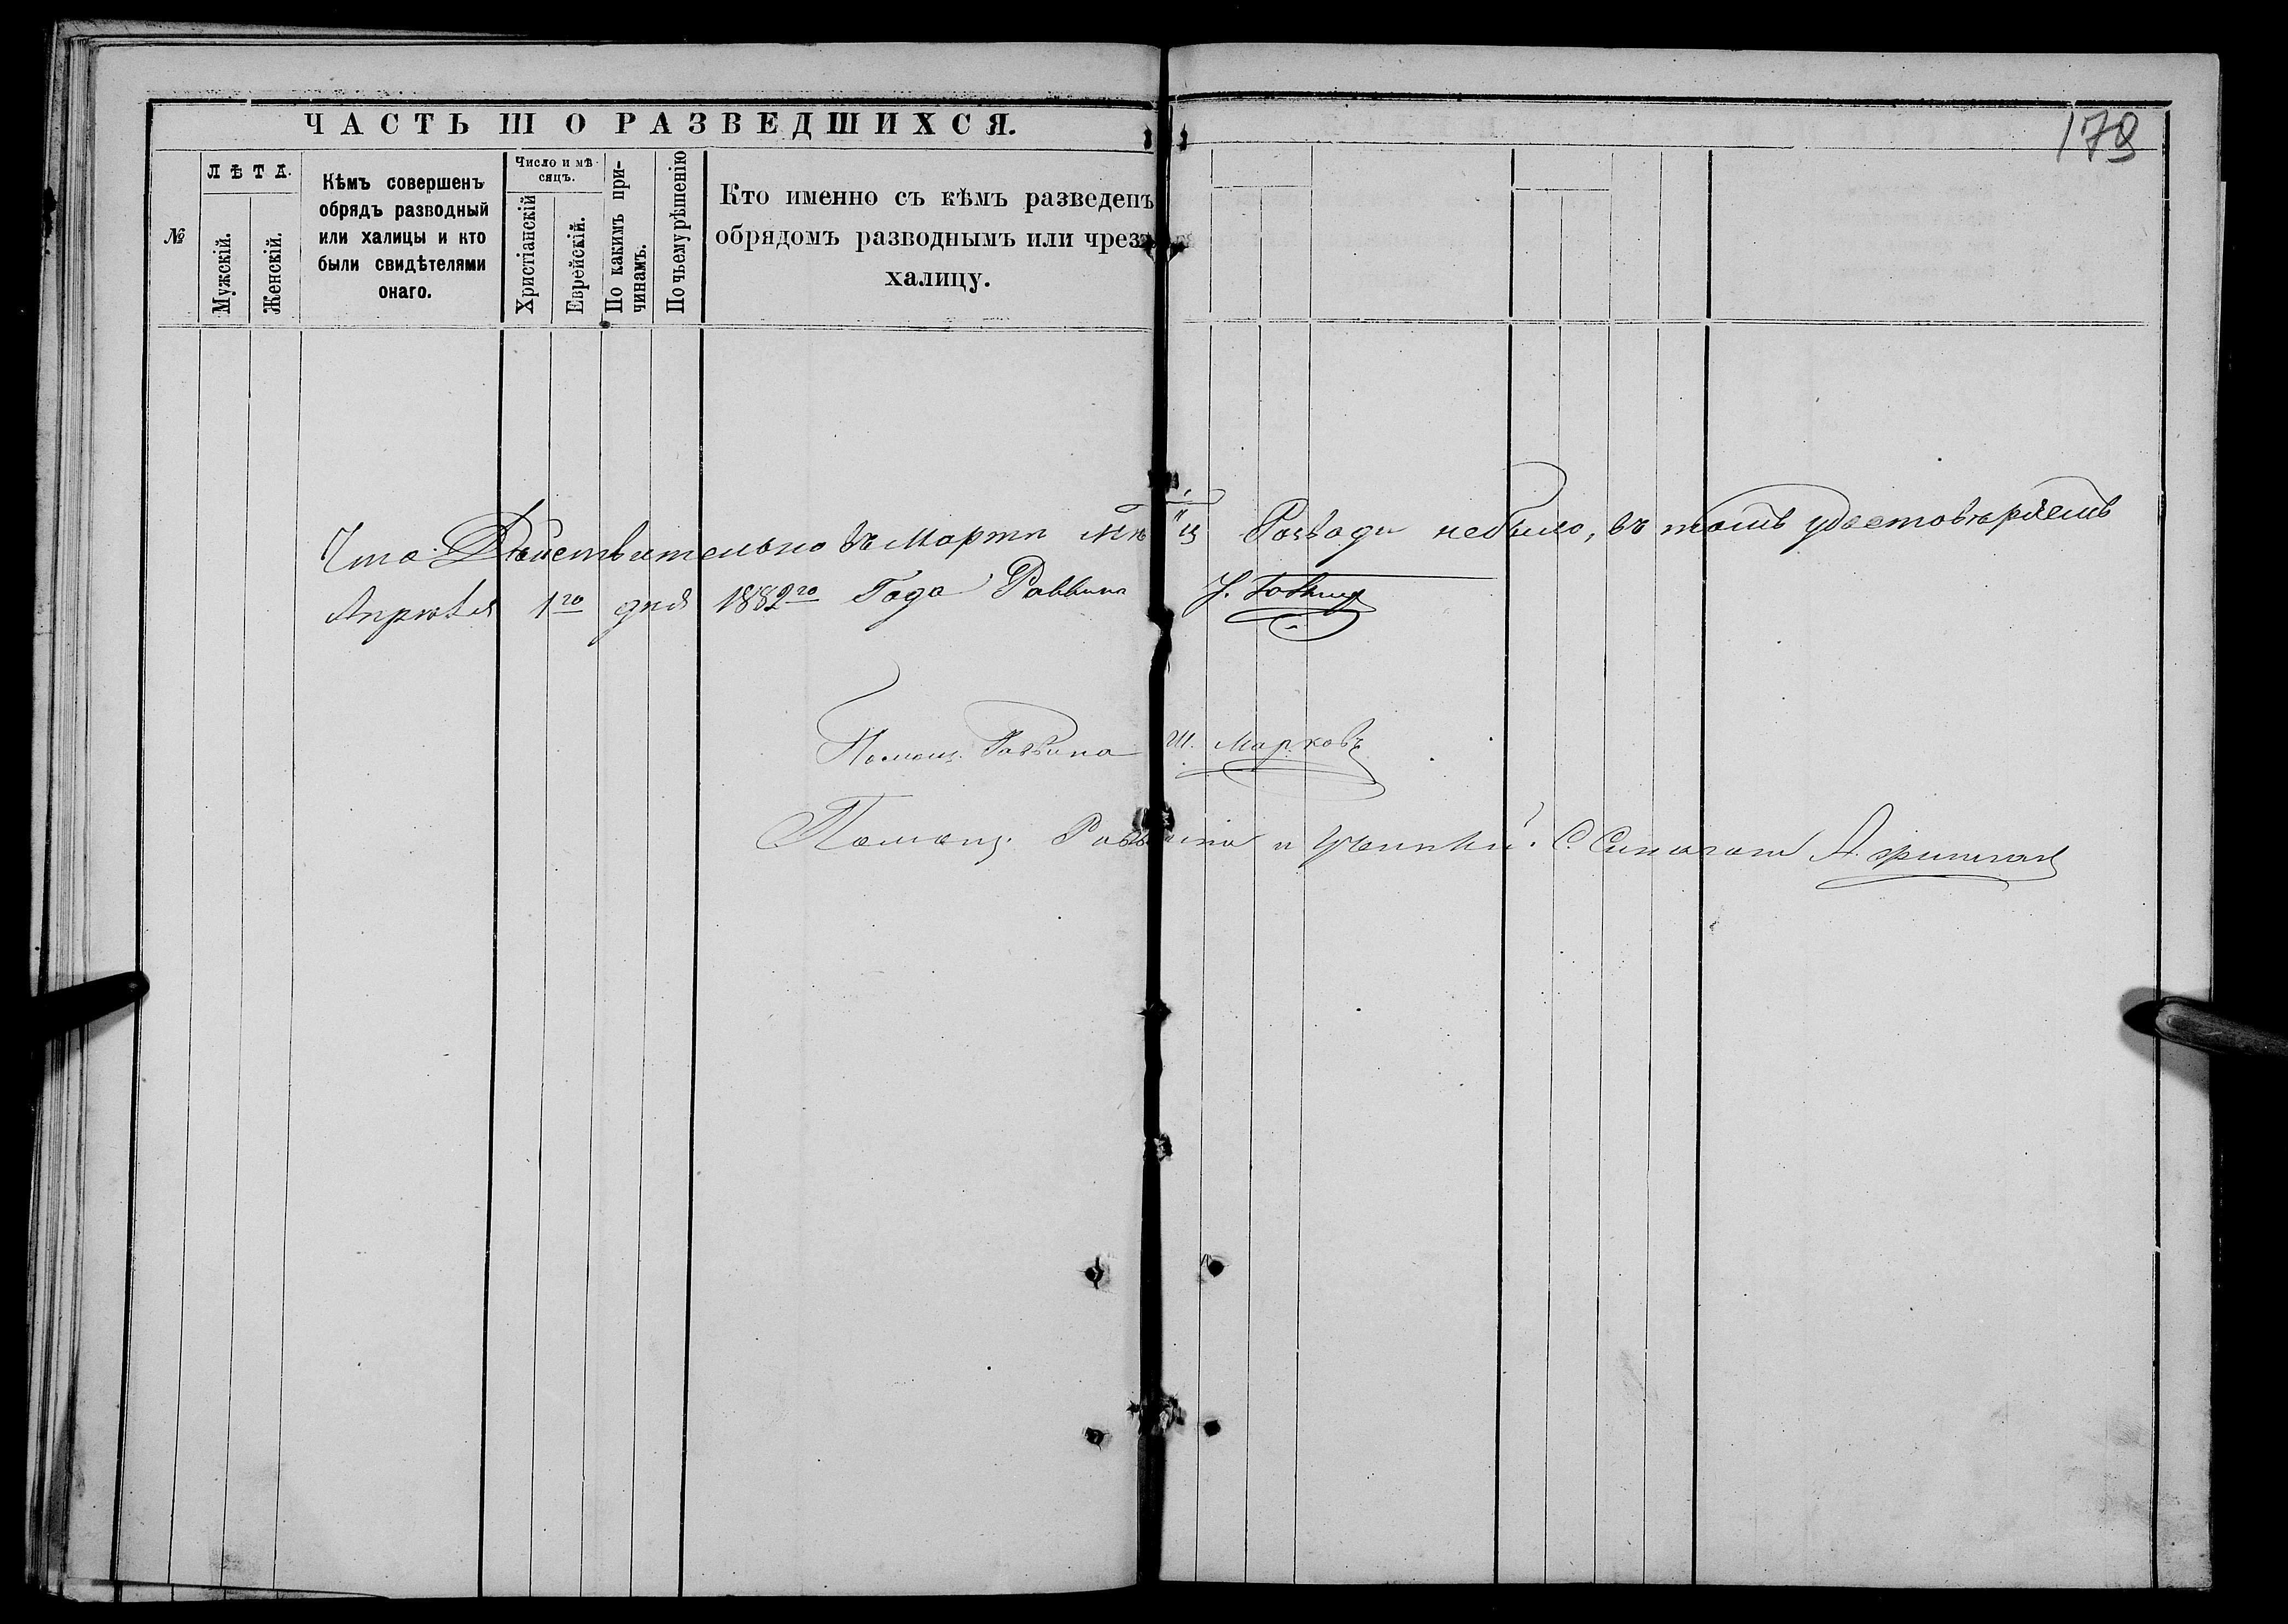 ЧАСТЬ III О РАЗВЕДШИХСЯ.
178
№
ЛѢТА.
Мужскій.
Женскій.
Кѣмъ совершенъ
обрядъ разводный
или халицы и кто
были свидѣтелями
онаго.
Число и мѣ-
сяцъ.
Христіанскій
Еврейскій.
По какимъ при-
чинамъ.
По чьему рѣшенію
Кто именно съ кѣмъ разведенъ
обрядомъ разводнымъ или чрезъ
халицу.
Что Дѣйствительно въ Мартѣ м-цѣ небыло, въ томъ удостовѣряемъ
Апрѣля 1го дня 1882го Года Раввинъ
Помощ. Раввина Ш. Марковъ
Помощ. Раввина и